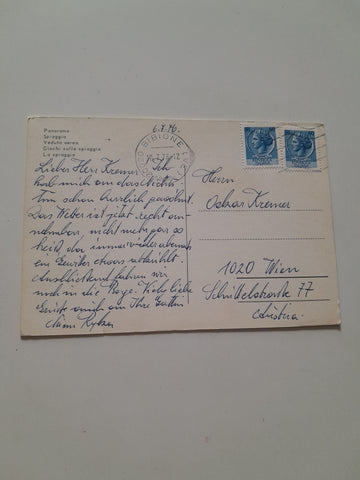 6.7.76.
Panorama
Spiaggia
Veduta aerea
Giochi sulla spiaggia
La spiaggia
BIBIONE
Lieber Herr Kremer! Ich
hab mich an das Nichts-
Tun schon herrlich gewöhnt.
Das Wetter ist jetzt recht an-
nehmbar, nicht mehr gar so
heiß da immer wieder abends
ein Gewitter etwas abkühlt.
Anschließend fahren wir
noch in die Berge. Viele liebe
Grüße auch an Ihre Gattin
Herrn
Oskar Kremer
1020 Wien
Schüttelstraße 77
Austria